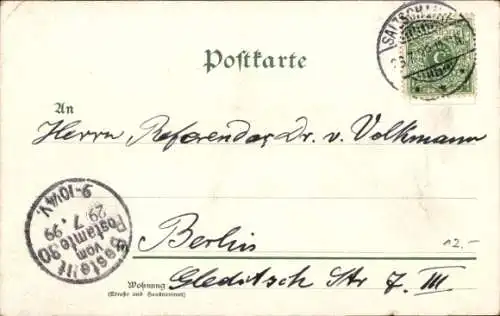 SALZSCHLIRF
Postkarte
5
An
Herrn Referendar Dr. v. Volkmann
Bestellt
vom
Postamte 30
29.7.99
9-10¼V.
Berlin
12.-
Wohnung
(Straße und Hausnummer)
Gleditsch Str 7. III